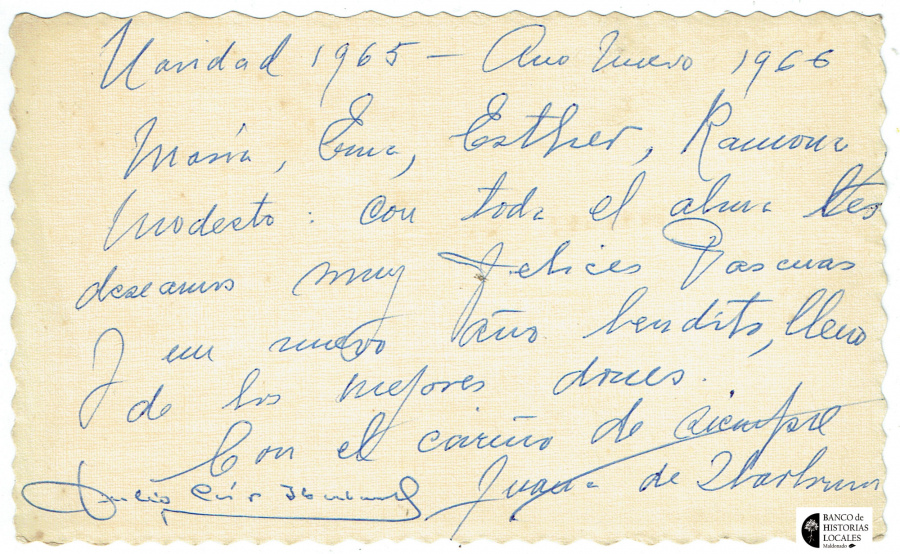 Navidad 1965 - Año Nuevo 1966
María, Ema, Esther, Ramona
Modesto: con toda el alma les
deseamos muy felices Pascuas
y un nuevo año bendito, lleno
de los mejores dones.
Con el cariño de siempre
Juana de Ibarbourou
Julio
BANCO de
HISTORIAS
LOCALES
Maldonado